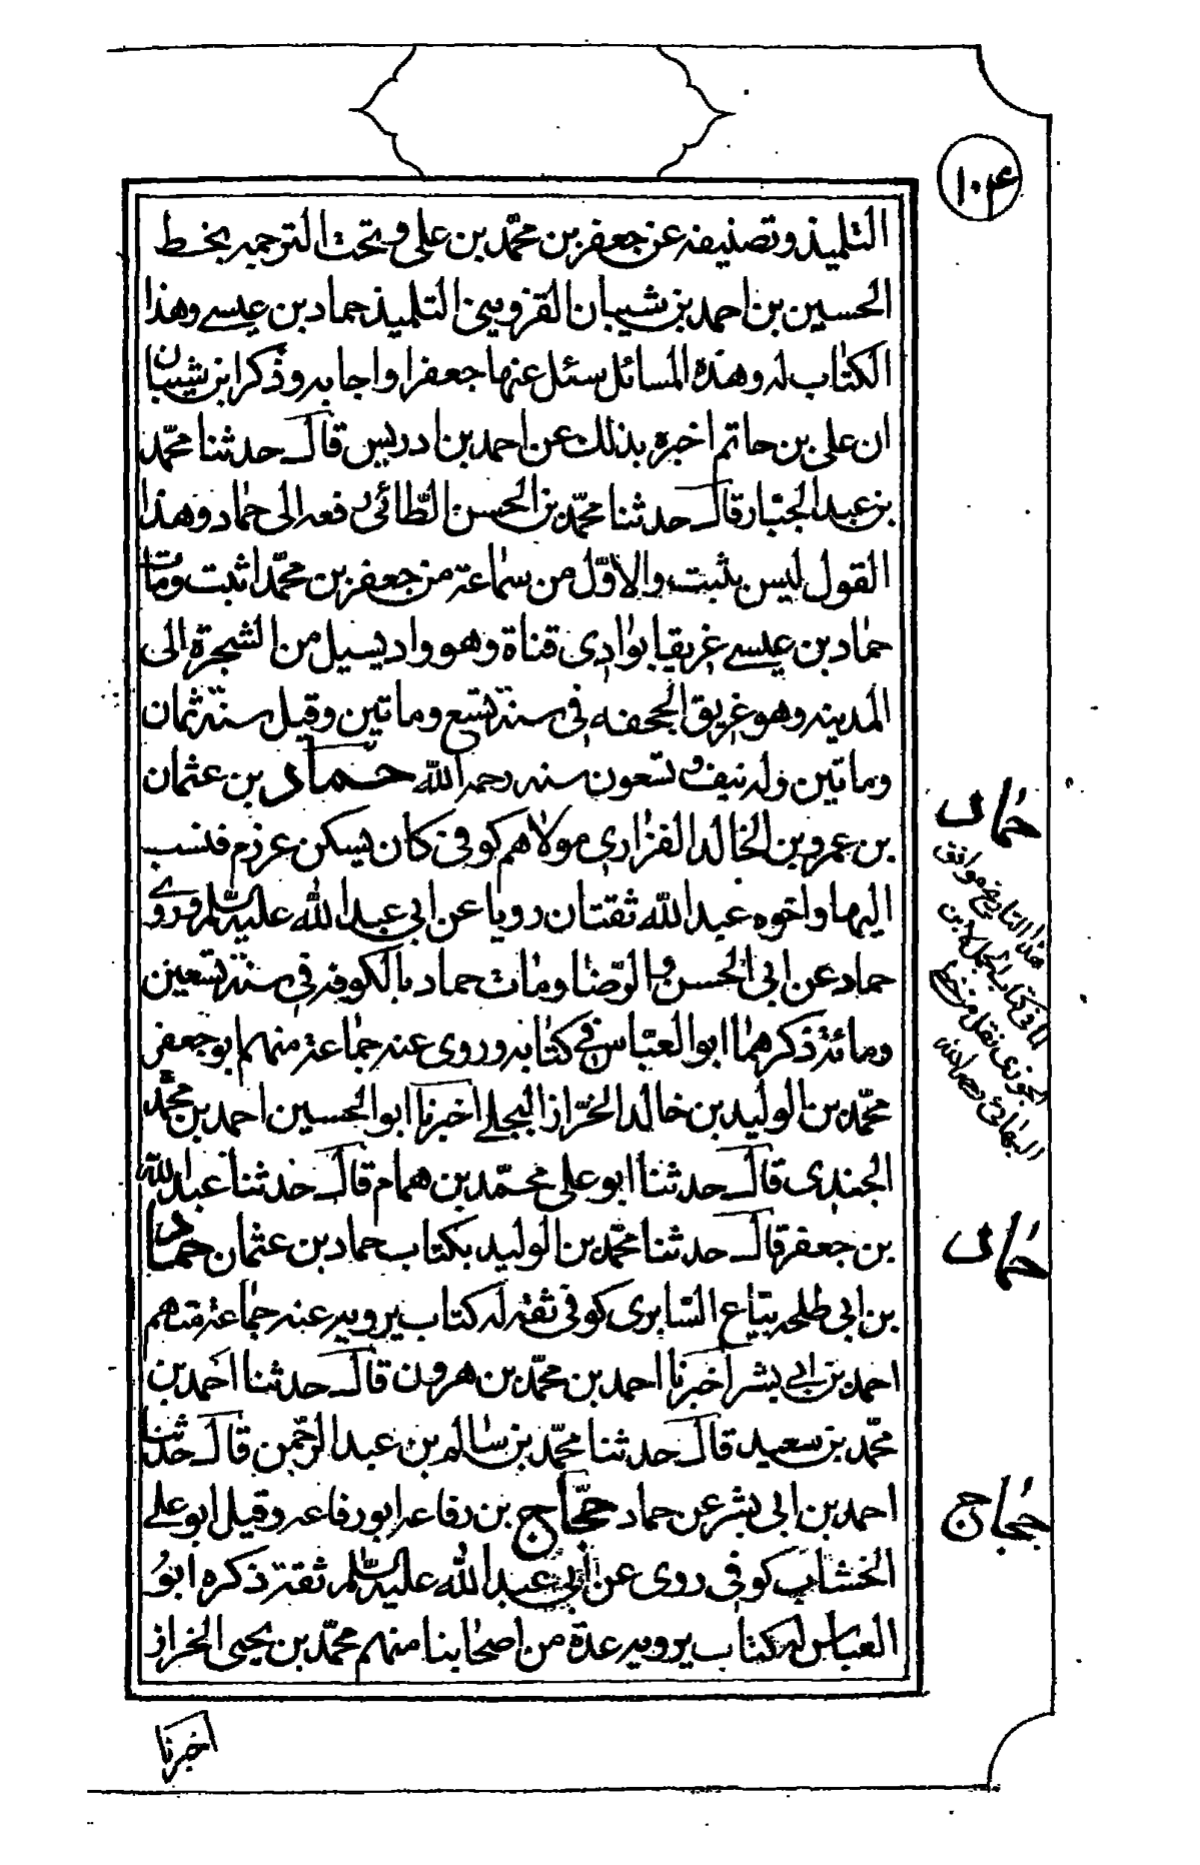 ۱۰۴
التلميذ وتصنيفه عن جعفر بن محمّد بن علي وتحت الترجمه بخط
الحسين بن احمد بن شيبان القزويني التلميذ حماد بن عيسے وهذا
الكتاب له وهذه المسائل سئل عنها جعفرا واجابه وذكر ابن شيبان
ان على بن حاتم اخبره بذلك عن احمد بن ادريس قال حدثنا محمّد
بن عبد الجبّار قال حدثنا محمّد بن الحسن الطّائى يرفعه الى حماد وهذا
القول ليس بثبت والاوّل من سماعة من جعفر بن محمّد اثبت ومات
حماد بن عيسے غريقا بوادى قناة وهو واد يسيل من الشجرة الى
المدينه وهو غريق الجحفه في سنة تسع وماتين وقيل سنة ثمان
وماتين وله نيف وتسعون سنه رحمه الله حماد بن عثمان
بن عمرو بن الخالد الفزارى مولاهم كوفى كان يسكن عرزم فنسب
اليها واخوه عبد الله ثقتان رويا عن ابي عبد الله عليه السّلم وروى
حماد عن ابى الحسن والرّضا ومات حماد بالكوفه في سنة تسعين
ومائة ذكرهما ابو العبّاس في كتابه وروى عنه جماعة منهم ابو جعفر
محمّد بن الوليد بن خالد الخزّاز البجلے اخبرنا ابو الحسين احمد بن محمّد
الجندى قال حدثنا ابو على محمّد بن همام قال حدثنا عبد الله
بن جعفر قال حدثنا محمّد بن الوليد بكتاب حماد بن عثمان حماد
بن ابى طلحه بيّاع السّابرى كوفى ثقه له كتاب يرويه عنه جماعة منهم
احمد بن ابے بشر اخبرنا احمد بن محمّد بن هرون قال حدثنا احمد بن
محمّد بن سعيد قال حدثنا محمّد بن سالم بن عبد الرّحمن قال حدثنا
احمد بن ابى بشر عن حماد حجّاج بن رفاعه ابو رفاعه وقيل ابو علے
الخشاب كوفى روى عن ابى عبد الله عليه السّلم ثقة ذكره ابو
العباس له كتاب يرويه عدة من اصحابنا منهم محمّد بن يحيى الخزاز
اخبرنا
حماد
هذا التاريخ موافق
لما فى كتاب لابن
الجوزى نقل من خط
البهائى
حماد
حجاج